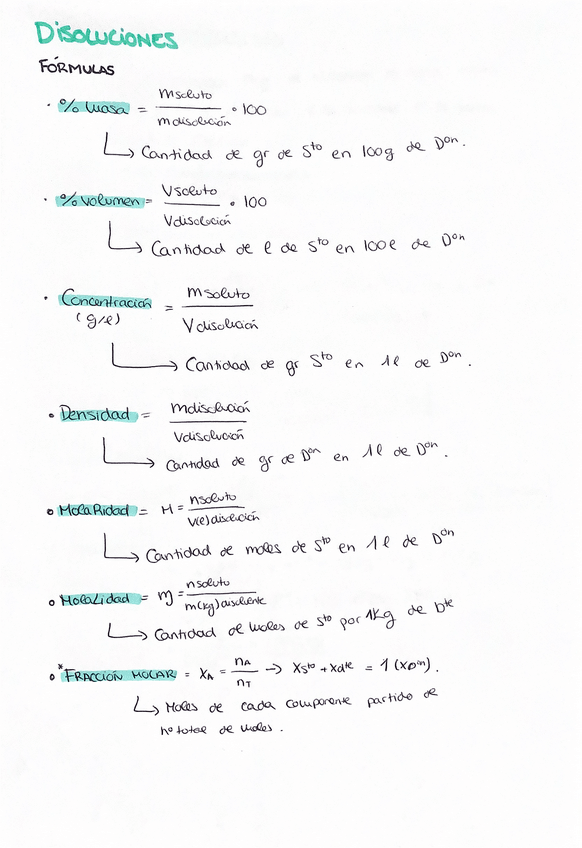 DISOLUCIONES
FÓRMULAS
· % masa = m soluto / m disolución · 100
↳ Cantidad de gr de Sto en 100g de Don.
· % volumen = V soluto / V disolución · 100
↳ Cantidad de l de Sto en 100l de Don
· Concentración (g/l) = m soluto / V disolución
↳ Cantidad de gr Sto en 1l de Don.
· Densidad = m disolución / V disolución
↳ Cantidad de gr de Don en 1l de Don.
· MolaRidad = M = n soluto / V(l) disolución
↳ Cantidad de moles de Sto en 1l de Don
· MolaLidad = m = n soluto / m(kg) disolvente
↳ Cantidad de moles de Sto por 1Kg de Dte
· *FRACCIÓN MOLAR = XA = nA / nT → Xsto + Xdte = 1 (XDon).
↳ Moles de cada componente partido de
nº total de moles.